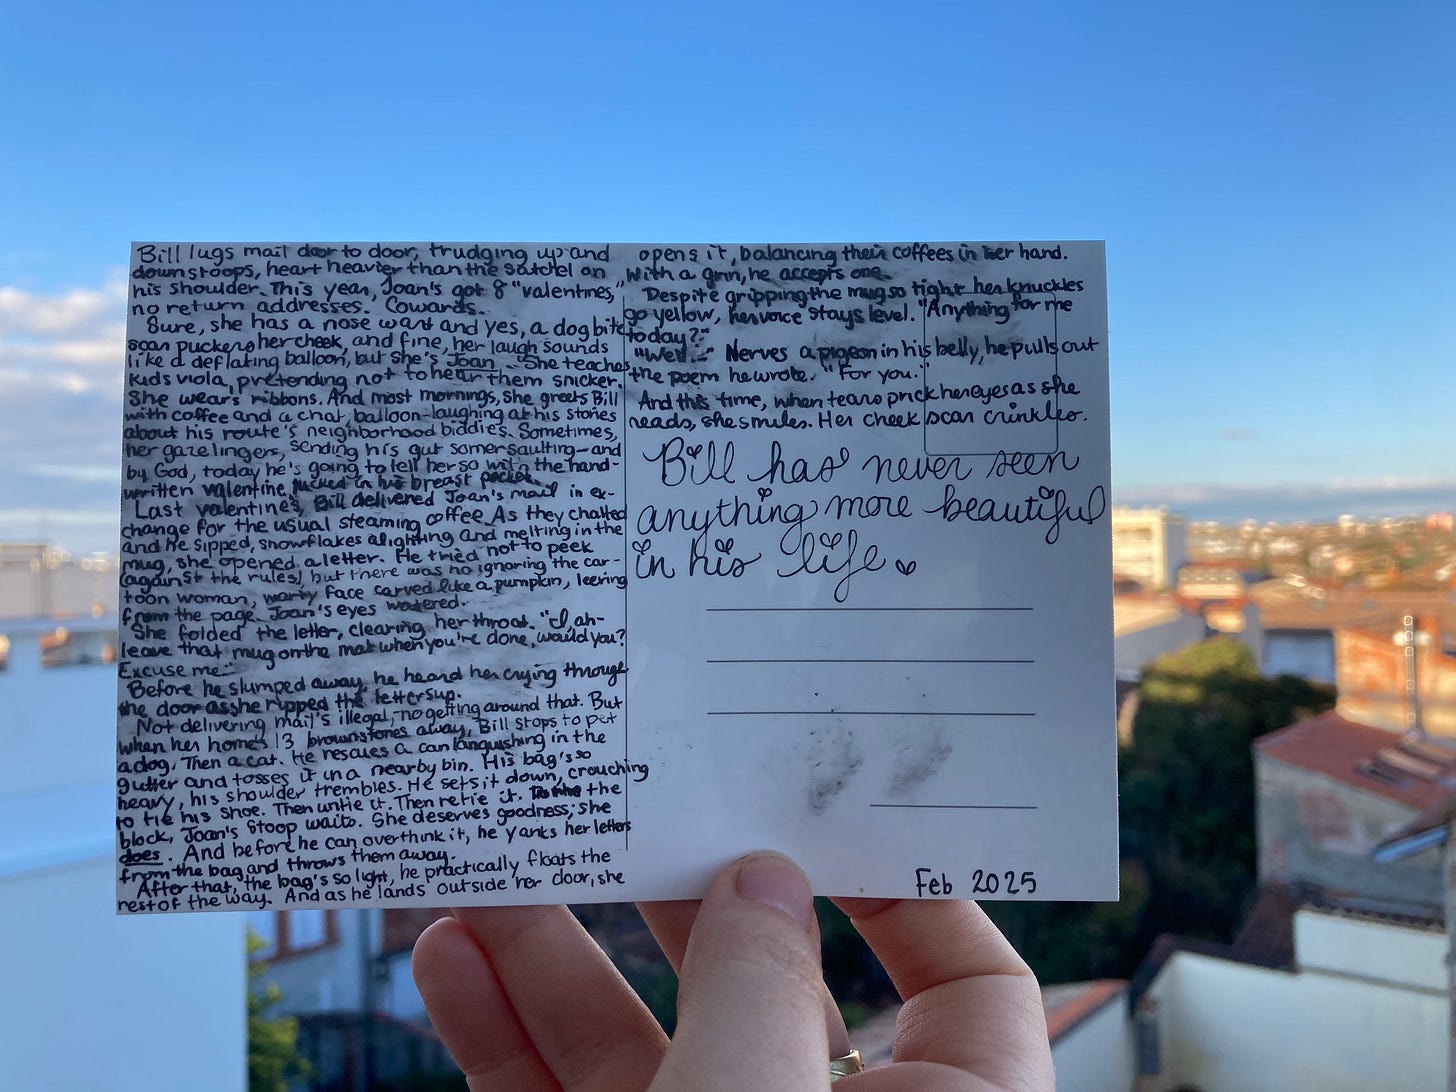 Bill lugs mail door to door, trudging up and
down stoops, heart heavier than the satchel on
his shoulder. This year, Joan's got 8 "valentines,"
no return addresses. Cowards.
Sure, she has a nose wart and yes, a dog bite
scar puckers her cheek, and fine, her laugh sounds
like a deflating balloon, but she's Joan. She teaches
kids viola, pretending not to hear them snicker.
She wears ribbons. And most mornings, she greets Bill
with coffee and a chat, balloon-laughing at his stories
about his route's neighborhood biddies. Sometimes,
her gaze lingers, sending his gut somersaulting—and
by God, today he's going to tell her so with the hand-
written valentine tucked in his breast pocket.
Last valentine's, Bill delivered Joan's mail in ex-
change for the usual steaming coffee. As they chatted
and he sipped, snowflakes alighting and melting in the
mug, she opened a letter. He tried not to peek
(against the rules) but there was no ignoring the car-
toon woman, warty face carved like a pumpkin, leering
from the page. Joan's eyes watered.
She folded the letter, clearing her throat. "I, ah-
leave that mug on the mat when you're done, would you?
Excuse me-"
Before he slumped away he heard her crying through
the door as she ripped the letters up.
Not delivering mail's illegal, no getting around that. But
when her home's 13 brownstones away, Bill stops to pet
a dog. Then a cat. He rescues a can languishing in the
gutter and tosses it in a nearby bin. His bag's so
heavy, his shoulder trembles. He sets it down, crouching
to tie his shoe. Then untie it. Then retie it. the
block, Joan's stoop waits. She deserves goodness; she
does. And before he can overthink it, he yanks her letters
from the bag and throws them away.
After that, the bag's so light, he practically floats the
rest of the way. And as he lands outside her door, she
opens it, balancing their coffees in her hand.
With a grin, he accepts one.
Despite gripping the mug so tight her knuckles
go yellow, her voice stays level. "Anything for me
today?"
"Well..." Nerves a pigeon in his belly, he pulls out
the poem he wrote. "For you."
And this time, when tears prick her eyes as she
reads, she smiles. Her cheek scar crinkles.
Bill has never seen
anything more beautiful
in his life.
Feb 2025